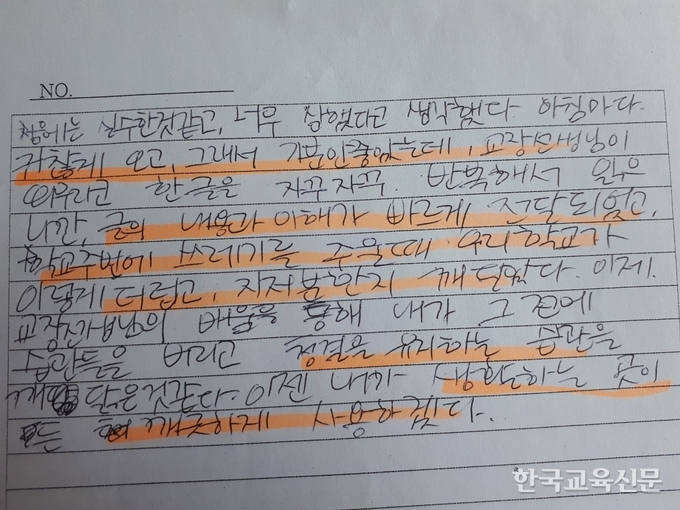 NO.
처음에는 실수한것같고, 너무 잘했다고 생각했다. 아침마다.
귀찮게 오고, 그래서 기분안좋있는데, 교장선생님이
외우라고 한글을 자꾸자꾸. 반복해서 읽은
니깐, 글의 내용과 이해가 바르게 전달되었고,
학교주변에 쓰레기를 주울때 우리학교가
이렇게 더럽고, 지저분한지 깨달았다. 이제.
교장선생님의 배움을 통해 내가 그 전에
습관들을 버리고 청결을 유지하는 습관을
깨달은것같다. 이젠 내가 생활하는 곳이
든 깨끗하게 사용하겠다.
한국교육신문